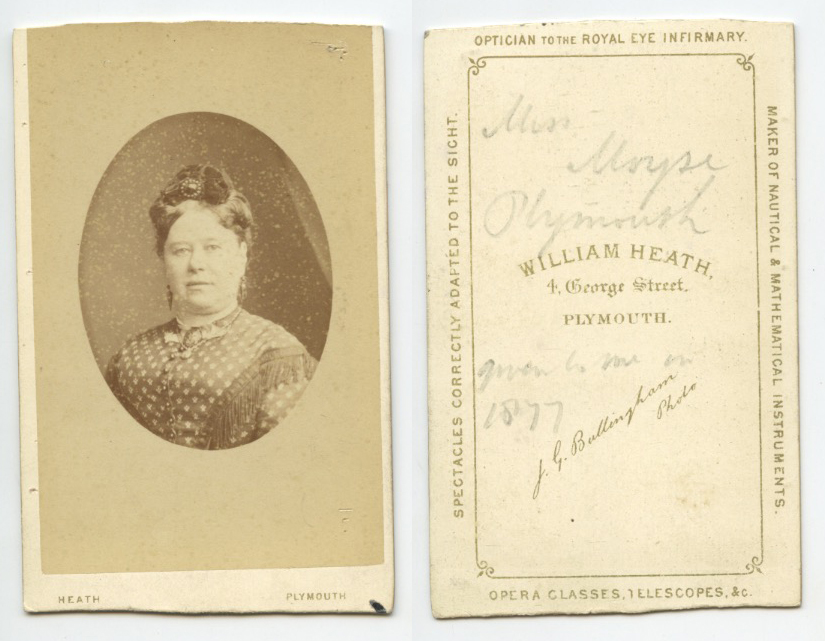 HEATH
PLYMOUTH
OPTICIAN TO THE ROYAL EYE INFIRMARY.
SPECTACLES CORRECTLY ADAPTED TO THE SIGHT.
MAKER OF NAUTICAL & MATHEMATICAL INSTRUMENTS.
Miss
Moyse
Plymouth
WILLIAM HEATH,
4, George Street,
PLYMOUTH.
given to me in
1877
J. G. Bullingham
Photo
OPERA GLASSES, TELESCOPES, &c.